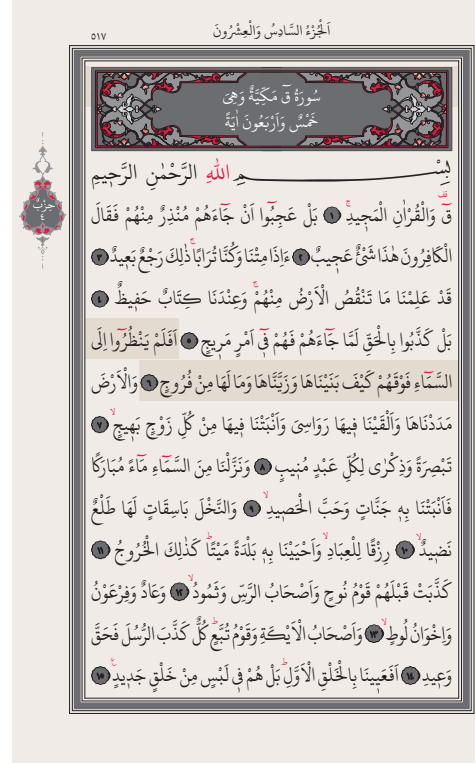 اَلْجُزْءُ السَّادِسُ وَالْعِشْرُونَ
٥١٧
سُورَةُ قٓ مَكِّيَّةٌ وَهِيَ
خَمْسٌ وَاَرْبَعُونَ اٰيَةً
بِسْمِ اللّٰهِ الرَّحْمٰنِ الرَّحٖيمِ
قٓ وَالْقُرْاٰنِ الْمَجٖيدِۚ ﴿١﴾ بَلْ عَجِبُٓوا اَنْ جَٓاءَهُمْ مُنْذِرٌ مِنْهُمْ فَقَالَ
الْكَافِرُونَ هٰذَا شَيْءٌ عَجٖيبٌ ﴿٢﴾ ءَاِذَا مِتْنَا وَكُنَّا تُرَابًاۚ ذٰلِكَ رَجْعٌ بَعٖيدٌ ﴿٣﴾
قَدْ عَلِمْنَا مَا تَنْقُصُ الْاَرْضُ مِنْهُمْۚ وَعِنْدَنَا كِتَابٌ حَفٖيظٌ ﴿٤﴾
بَلْ كَذَّبُوا بِالْحَقِّ لَمَّا جَٓاءَهُمْ فَهُمْ فٖٓي اَمْرٍ مَرٖيجٍ ﴿٥﴾ اَفَلَمْ يَنْظُرُٓوا اِلَى
السَّمَٓاءِ فَوْقَهُمْ كَيْفَ بَنَيْنَاهَا وَزَيَّنَّاهَا وَمَا لَهَا مِنْ فُرُوجٍ ﴿٦﴾ وَالْاَرْضَ
مَدَدْنَاهَا وَاَلْقَيْنَا فٖيهَا رَوَاسِيَ وَاَنْبَتْنَا فٖيهَا مِنْ كُلِّ زَوْجٍ بَهٖيجٍۙ ﴿٧﴾
تَبْصِرَةً وَذِكْرٰى لِكُلِّ عَبْدٍ مُنٖيبٍ ﴿٨﴾ وَنَزَّلْنَا مِنَ السَّمَٓاءِ مَٓاءً مُبَارَكًا
فَاَنْبَتْنَا بِهٖ جَنَّاتٍ وَحَبَّ الْحَصٖيدِۙ ﴿٩﴾ وَالنَّخْلَ بَاسِقَاتٍ لَهَا طَلْعٌ
نَضٖيدٌۙ ﴿١٠﴾ رِزْقًا لِلْعِبَادِۙ وَاَحْيَيْنَا بِهٖ بَلْدَةً مَيْتًاۜ كَذٰلِكَ الْخُرُوجُ ﴿١١﴾
كَذَّبَتْ قَبْلَهُمْ قَوْمُ نُوحٍ وَاَصْحَابُ الرَّسِّ وَثَمُودُۙ ﴿١٢﴾ وَعَادٌ وَفِرْعَوْنُ
وَاِخْوَانُ لُوطٍۙ ﴿١٣﴾ وَاَصْحَابُ الْاَيْكَةِ وَقَوْمُ تُبَّعٍۜ كُلٌّ كَذَّبَ الرُّسُلَ فَحَقَّ
وَعٖيدِ ﴿١٤﴾ اَفَعَيٖينَا بِالْخَلْقِ الْاَوَّلِۜ بَلْ هُمْ فٖي لَبْسٍ مِنْ خَلْقٍ جَدٖيدٍۚ ﴿١٥﴾
حِزْبٌ
٤